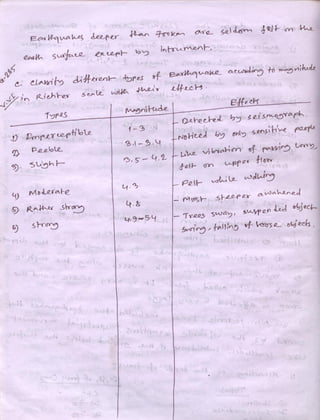 Earthquakes deeper than 700km are seldom felt on the
earth surface except by intrument.
2. classify different types of Earthquake according to magnitude
in Richter scale with their effects.
Types Magnitude Effects
1) Imperceptible 1-3 - Detected by seismograph
2) Feeble 3.1-3.4 - Noticed by only sensitive people
3) Slight 3.5-4.2 - Like vibration of passing lorry,
felt on upper floor
4) Moderate 4.3 - Felt while walking
5) Rather strong 4.8 - Most sleeper awakened
6) Strong 4.9-5.4 - Trees sway, suspended object
swing, falling of loose objects.